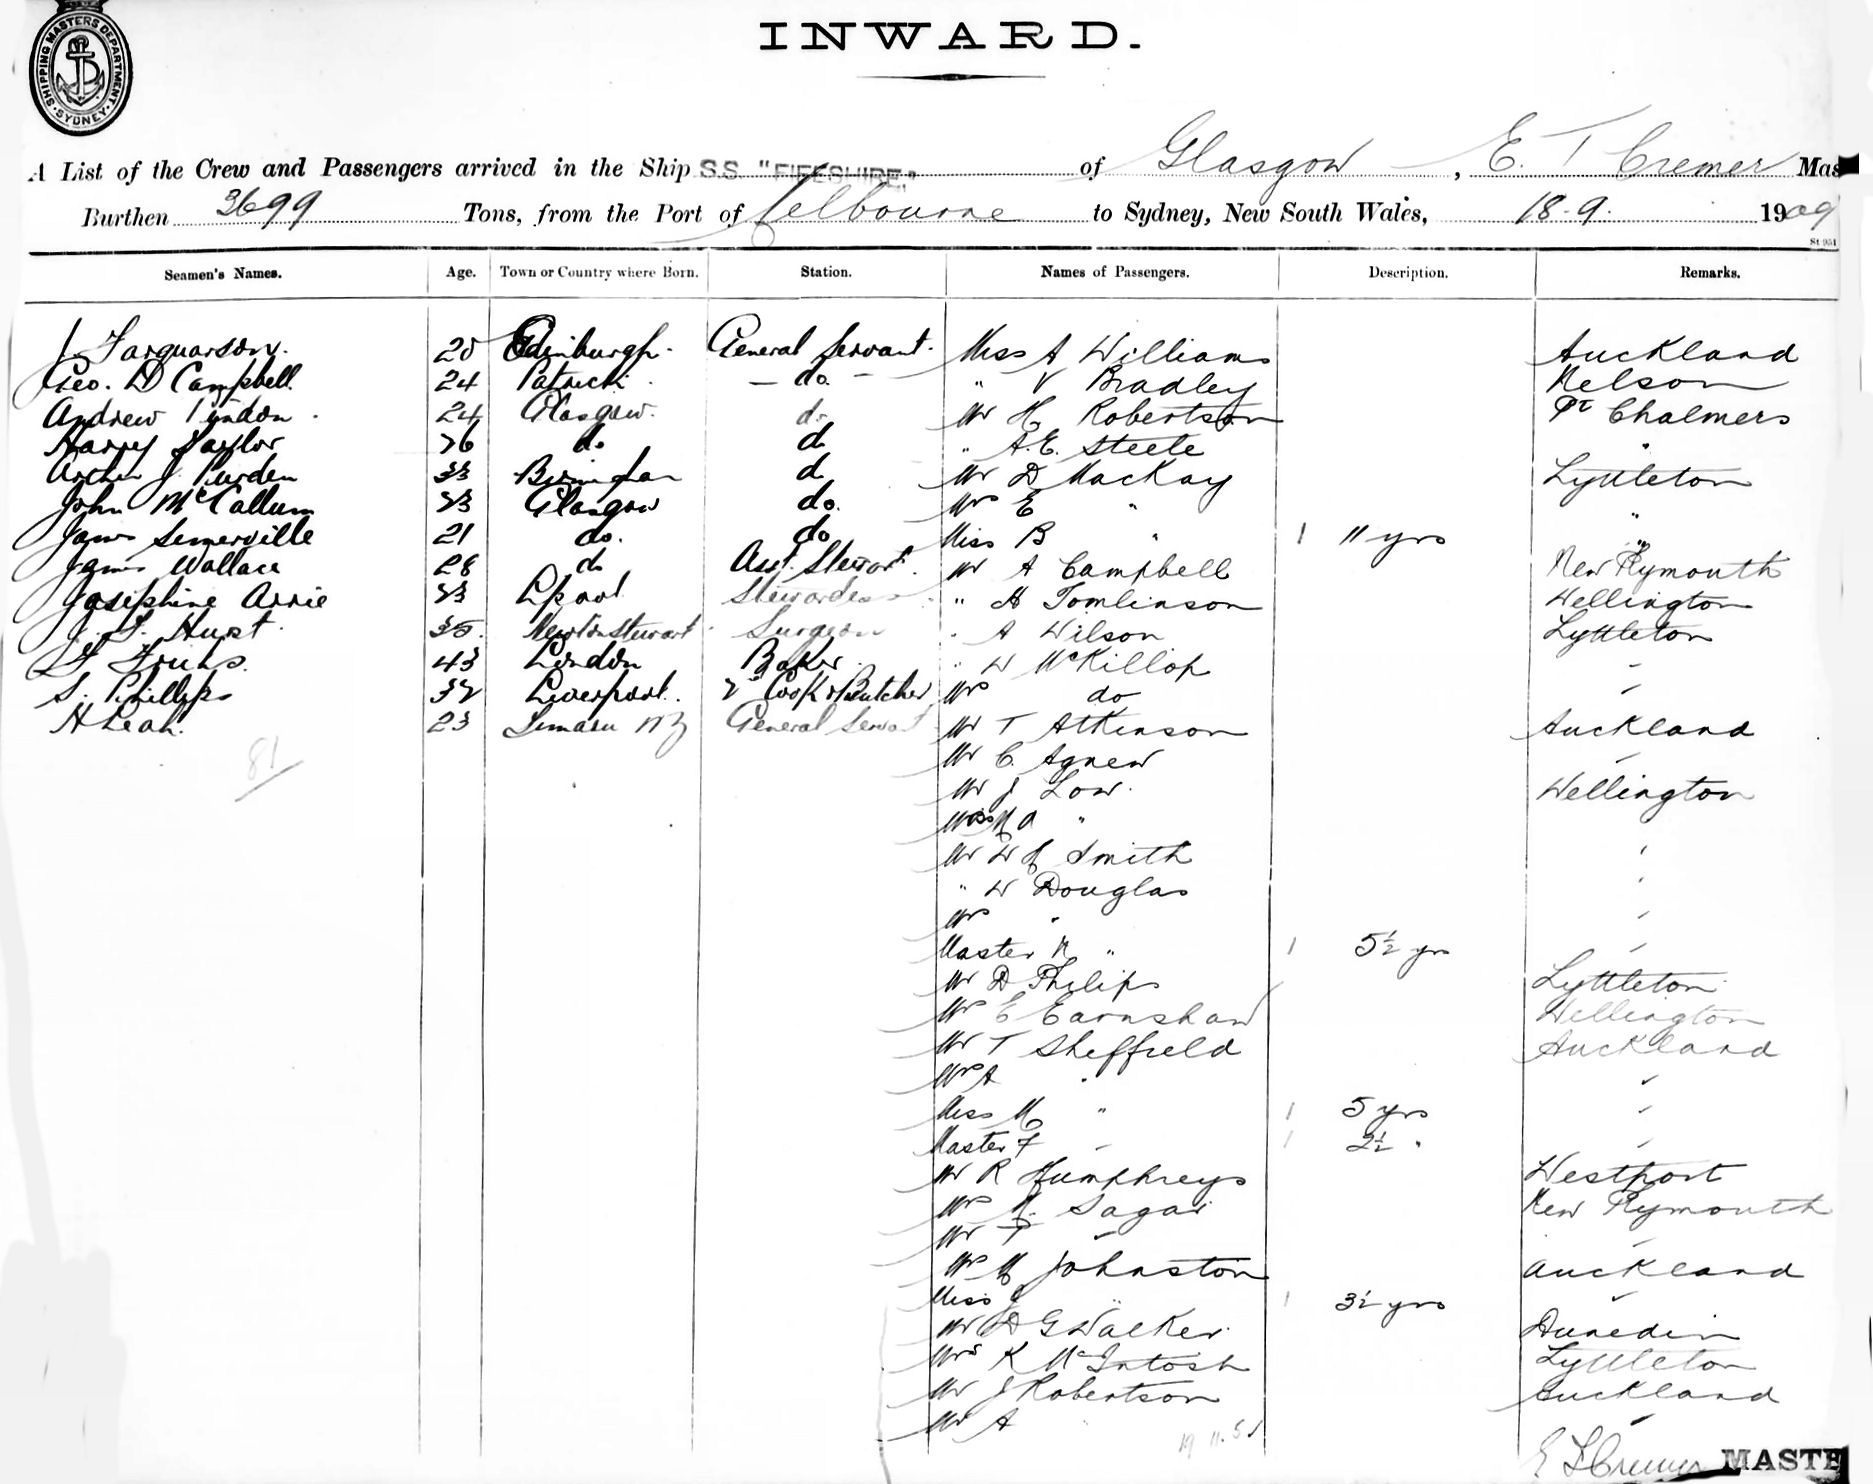 SHIPPING MASTERS DEPARTMENT. SYDNEY
INWARD.
A List of the Crew and Passengers arrived in the Ship S.S. "FIFESHIRE," of Glasgow, E. T Cremer Mas
Burthen 3699 Tons, from the Port of Melbourne to Sydney, New South Wales, 18.9. 1909
St 951
Seamen's Names. Age. Town or Country where Born. Station. Names of Passengers. Description. Remarks.
J. Farquarson. 20 Edinburgh. General Servant. Miss A Williams Auckland
Geo. D Campbell 24 Patrick - do - " V Bradley Nelson
Andrew 24 Glasgow. do Mr H Robertson Pt Chalmers
Harry Taylor 26 do d " A.E. Steele "
J Purden 33 d Mr D MacKay Lyttleton
John McCallum 23 Glasgow do. Mrs E " "
James Somerville 21 do. do Miss B " 1 11 yrs "
James Wallace 28 do Asst. Steward. Mr A Campbell New Plymouth
Josephine 23 Lpool Stewardess " H Tomlinson Wellington
J. F. Hurst. 35. Newtonstewart Surgeon " A Wilson Lyttleton
F 43 London Baker. " W McKillop "
S. Phillips 32 Liverpool. 2nd Cook & Butcher Mrs do "
H Leah. 23 Timaru NZ General Servant Mr T Atkinson Auckland
81
Mr C. Agnew "
Mr J Low. Wellington
"
Mr W H Smith "
" W Douglas "
Mrs " "
Master N " 1 5½ yrs "
Mr D Philips Lyttleton
Mrs E Earnshaw Wellington
Mr T Sheffield Auckland
Mrs A " "
Miss M " 1 5 yrs "
Master F " 1 2½ " "
Mr R Humphreys Westport
Mrs M. Sagar New Plymouth
Mr T " "
Mrs M Johnston Auckland
Miss J " 1 3½ yrs "
Mr D G Walker. Dunedin
Mrs K McIntosh Lyttleton
Mr J Robertson Auckland
Mr A "
E T Cremer MASTE